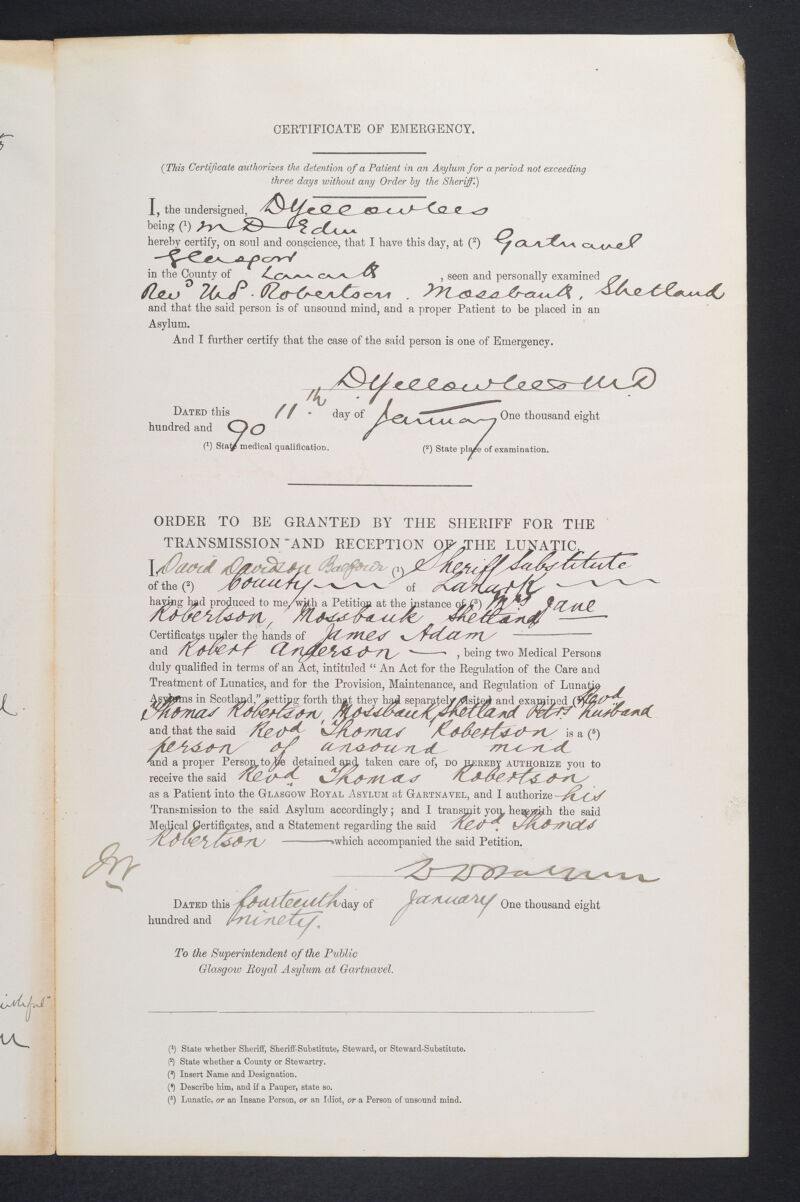 CERTIFICATE OF EMERGENCY.
(This Certificate authorizes the detention of a Patient in an Asylum for a period not exceeding
three days without any Order by the Sheriff.)
I, the undersigned, D Yellowlees
being (1) M D Edin
hereby certify, on soul and conscience, that I have this day, at (2) Gartnavel
Glasgow
in the County of Lanark , seen and personally examined
Revd Robertson. Mossbank, Shetland
and that the said person is of unsound mind, and a proper Patient to be placed in an
Asylum.
And I further certify that the case of the said person is one of Emergency.
D Yellowlees MD
DATED this 11th day of January One thousand eight
hundred and 90
(1) State medical qualification. (2) State place of examination.
ORDER TO BE GRANTED BY THE SHERIFF FOR THE
TRANSMISSION AND RECEPTION OF THE LUNATIC.
I, David Davidson Balfour (1) Sheriff Substitute
of the (2) County of Lanark
having had produced to me, with a Petition at the instance of (3) Mrs Jane
Robertson, Mossbank Shetland
Certificates under the hands of James Adam
and Robert Anderson , being two Medical Persons
duly qualified in terms of an Act, intituled "An Act for the Regulation of the Care and
Treatment of Lunatics, and for the Provision, Maintenance, and Regulation of Lunatic
Asylums in Scotland," setting forth that they had separately visited and examined (4) Revd
Thomas Robertson, Mossbank, Shetland Petrs husband
and that the said Revd Thomas Robertson is a (5)
person of unsound mind
and a proper Person to be detained and taken care of, DO HEREBY AUTHORIZE you to
receive the said Revd Thomas Robertson
as a Patient into the GLASGOW ROYAL ASYLUM at GARTNAVEL, and I authorize his
Transmission to the said Asylum accordingly; and I transmit you herewith the said
Medical Certificates, and a Statement regarding the said Revd. Thomas
Robertson which accompanied the said Petition.
D D Balfour
DATED this fourteenth day of January One thousand eight
hundred and ninety.
To the Superintendent of the Public
Glasgow Royal Asylum at Gartnavel.
(1) State whether Sheriff, Sheriff-Substitute, Steward, or Steward-Substitute.
(2) State whether a County or Stewartry.
(3) Insert Name and Designation.
(4) Describe him, and if a Pauper, state so.
(5) Lunatic, or an Insane Person, or an Idiot, or a Person of unsound mind.